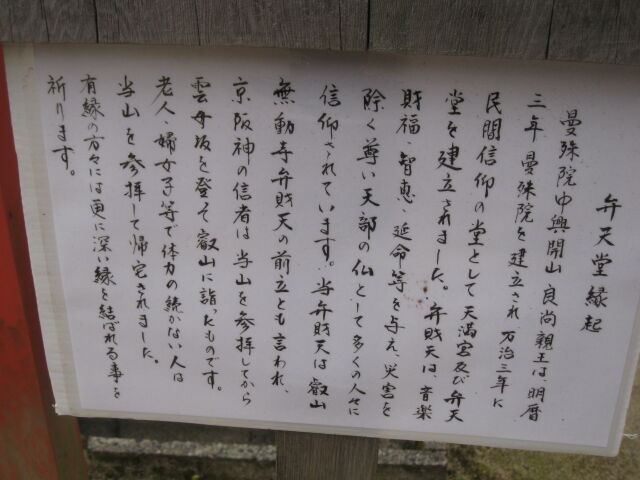 弁天堂縁起
曼殊院中興開山 良尚親王は、明暦
三年 曼殊院を建立され 万治三年に
民間信仰の堂として 天満宮及び弁天
堂を建立されました。弁財天は、音楽
財福・智恵・延命等を与え、災害を
除く尊い天部の仏として多くの人々に
信仰されています。当弁財天は 叡山
無動寺弁財天の前立とも言われ、
京阪神の信者は 当山を参拝してから
雲母坂を登て 叡山に詣ったものです。
老人・婦女子等で体力の続かない人は
当山を参拝して帰宅されました。
有縁の方々には更に深い縁を結ばれる事を
祈ります。